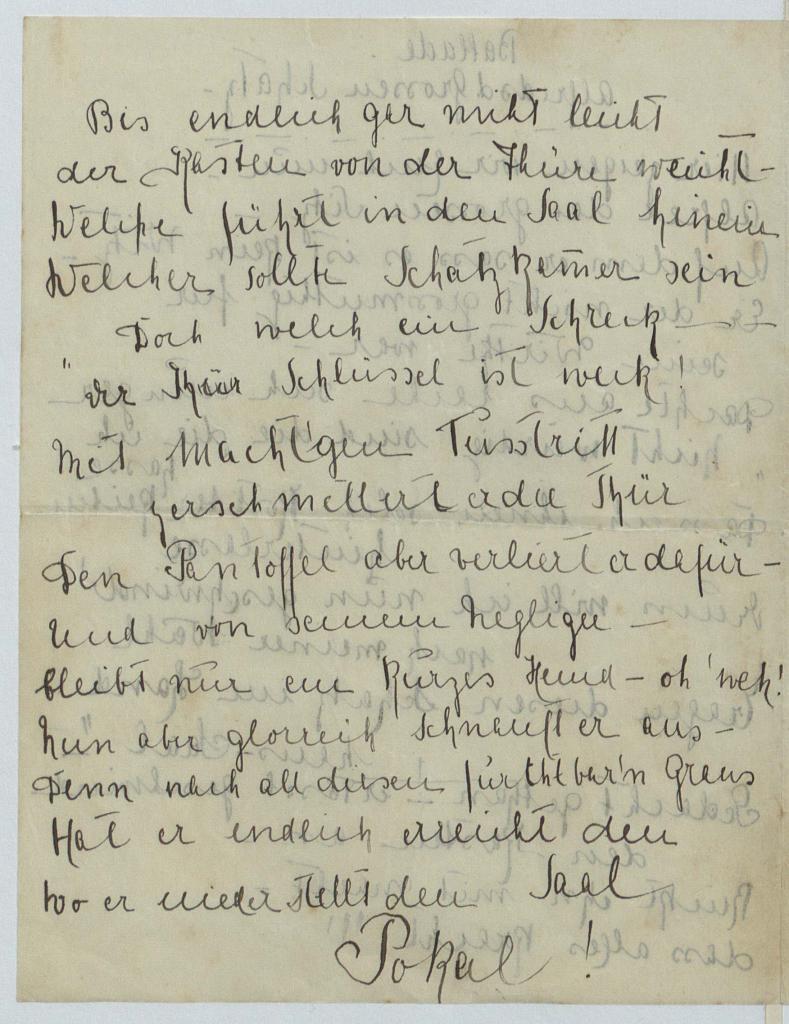 Bis endlich gar nicht leicht
der Kasten von der Thüre weicht –
Welche führt in den Saal hinein
Welcher sollte Schatzkam̄er sein
Doch welch ein Schreck — —
"der Thür Schlüssel ist weck!
Mit Macht'gen Fusstritt
zerschmettert er die Thür
Den Pantoffel aber verliert er dafür –
Und von seinem Negligee –
bleibt nur ein kurzes Hemd – oh' weh!
Nun aber glorreich schnauft er aus –
Denn nach all diesen fürchtbar'n Graus
Hat er endlich erreicht den
Saal
wo er niederstellt den
Pokal !